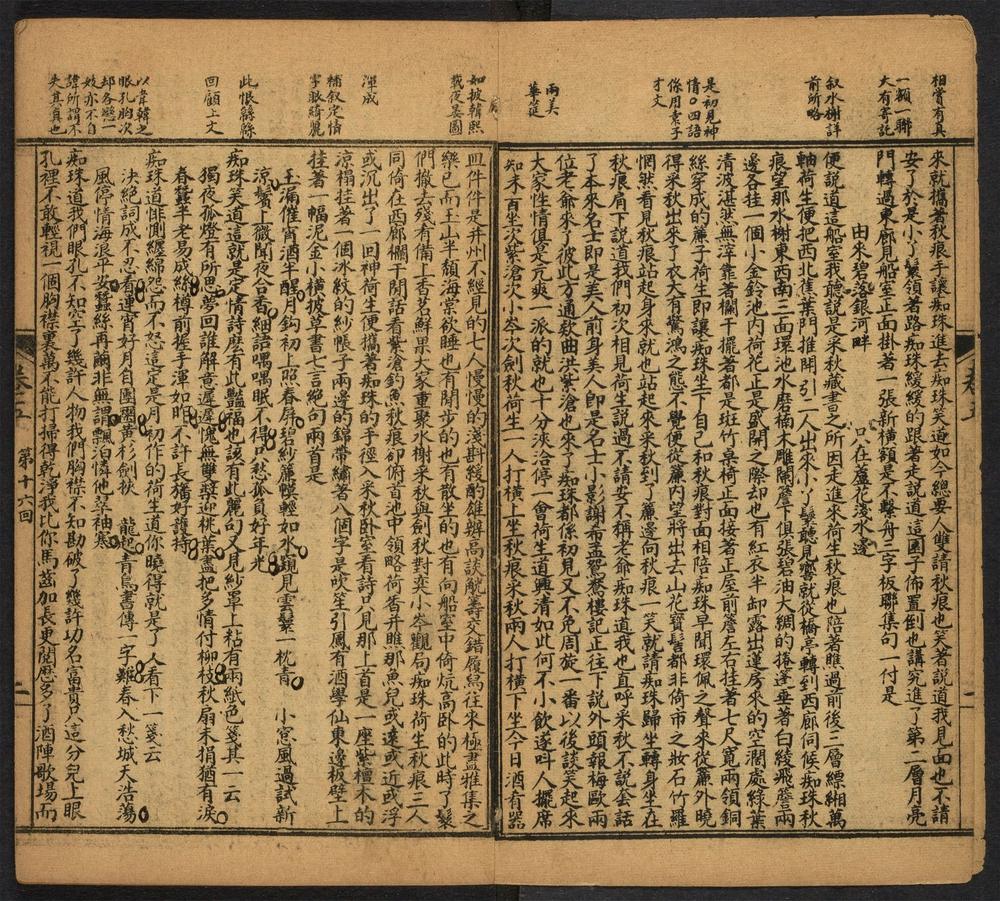 相賞有真
一額一聯
大有寄託
叙水榭詳
前所略
是初見神
情〇四語
係用袁子
才文
兩美
華筵
來就攜著秋痕手讓痴珠進去痴珠笑道如今總要人雙請秋痕也笑著說道我見面也不請
安了於是小丫鬟領著路痴珠緩緩的跟著走說道這園子佈置倒也講究進了第二層月亮
門轉過東廊見船室正面掛著一張新橫額是不繫舟三字板聯集句一付是
由來碧落銀河畔　只在蘆花淺水邊
便說道這船室我聽說是采秋藏書之所因走進來荷生秋痕也陪著瞧過前後三層縹緗萬
軸荷生便把西北蕉葉門推開引二人出來小丫鬟聽見響就從橋亭轉到西廊伺候痴珠秋
痕望那水榭東西南三面環池水磨楠木雕闌簷下俱張碧油大綢的捲篷垂著白綾飛簷兩
邊各挂一個小金鈴池內荷花正是盛開之際却也有紅衣半卸露出蓮房來的空濶處綠葉
清波湛然無滓靠著欄干擺著都是斑竹桌椅正面接著正屋前簷左右挂著七尺寬兩領銅
絲穿成的簾子荷生即讓痴珠坐下自己和秋痕對面相陪痴珠早聞環佩之聲來從簾外曉
得采秋出來了衣大有驚鴻之態不覺便從簾內望將出去山花寶髻都非倚市之妝石竹羅
惘然看見秋痕站起身來就也站起來采秋到了簾邊向秋痕一笑就請痴珠歸坐轉身坐在
秋痕肩下說道我們初次相見荷生說過不請安不稱老爺痴珠道我也直呼采秋不說套話
了本來名士即是美人前身美人即是名士小影謝希孟鴛鴦樓記正往下說外頭報梅歐兩
位老爺來了彼此方通欵曲洪紫滄也來了痴珠都係初見又不免周旋一番以後談笑起來
大家性情俱是亢爽一派的就也十分浹洽停一會荷生道興清如此何不小飲遂呌人擺席
知未首坐次紫滄次小岑次劍秋荷生一人打橫上坐秋痕米秋兩人打橫下坐今日酒有器
如披韓熙
載夜宴圖
渾成
補叙定情
字眼綺麗
此恨綿綿
回顧上文
以韋韓之
眼孔胸次
却各戀一
妓亦不自
諱所謂不
失其真也
皿件件是并州不經見的七人慢慢的淺斟緩酌雄辯高談觥籌交錯履舄往來極盡雅集之
樂已而玉山半頹海棠欲睡也有閒步的也有散坐的也有向船室中倚炕高臥的此時丫鬟
們撤去殘肴備上香茗鮮果大家重聚水榭采秋與劍秋對奕小岑觀局痴珠荷生秋痕三人
同倚在西廊欄干閒話看紫滄釣魚秋痕卻俯首池中領略荷香并瞧那魚兒或遠或近或浮
或沉出了一回神荷生便攜著痴珠的手徑入采秋卧室看詩只見那上首是一座紫檀木的
涼榻挂著一個冰紋的紗帳子兩邊的錦帶繡著八個字是吹笙引鳳有酒學仙東邊板壁上
挂著一幅泥金小橫披草書七言絕句兩首是
玉漏催宵酒半醒月鈎初上照春屏碧紗簾幙輕如水覷見雲鬟一枕青　小窓風過試新
涼鬢上微聞夜合香細語喁喁眠不得只愁孤負好年光
痴珠笑道這就是定情詩麽有此豔福也該有此麗句又見紗罩上粘有兩紙色箋其一云
獨夜孤燈有所思夢回誰解意遲遲愧無雙槳迎桃葉盡把多情付柳枝秋扇未捐猶有淚
春蠶半老易成絲樽前握手渾如昨不許長楊好護持
痴珠道悱惻纏綿怨而不怒這定是月初作的荷生道你曉得就是了人看下一箋云
決絕詞成不忍看連宵好月自團圞黃衫劍俠　龍起青鳥書傳一字難春入愁城天浩蕩
風停情海浪平安蠶絲再繭非無謂飄泊憐他翠袖寒
痴珠道我們眼孔不知空了幾許人物我們胸襟不知勘破了幾許功名富貴只這分兒上眼
孔裡不敢輕視一個胸襟裏萬不能打掃得乾淨我比你馬茲加長更閱歷多了酒陣歌場而
卷五
第十六回
二